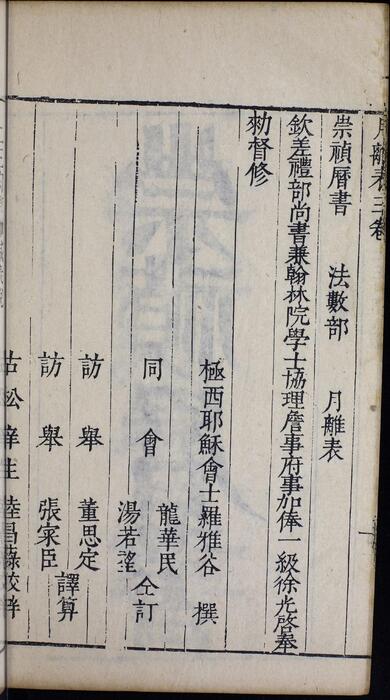 月離表三卷
崇禎曆書 法數部 月離表
欽差禮部尚書兼翰林院學士協理詹事府事加俸一級徐光啓奉
勑督修
極西耶穌會士羅雅谷 撰
同會 龍華民
湯若望 仝訂
訪舉 董思定
訪舉 張家臣 譯算